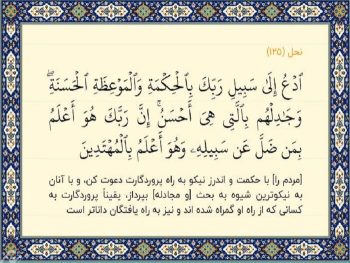 نحل (۱۲۵)
ٱدْعُ إِلَىٰ سَبِيلِ رَبِّكَ بِٱلْحِكْمَةِ وَٱلْمَوْعِظَةِ ٱلْحَسَنَةِۖ
وَجَٰدِلْهُم بِٱلَّتِى هِىَ أَحْسَنُۚ إِنَّ رَبَّكَ هُوَ أَعْلَمُ
بِمَن ضَلَّ عَن سَبِيلِهِۦ وَهُوَ أَعْلَمُ بِٱلْمُهْتَدِينَ
[مردم را] با حکمت و اندرز نیکو به راه پروردگارت دعوت کن، و با آنان
به نیکوترین شیوه به بحث [و مجادله] بپرداز، یقیناً پروردگارت به
کسانی که از راه او گمراه شده اند و نیز به راه یافتگان داناتر است